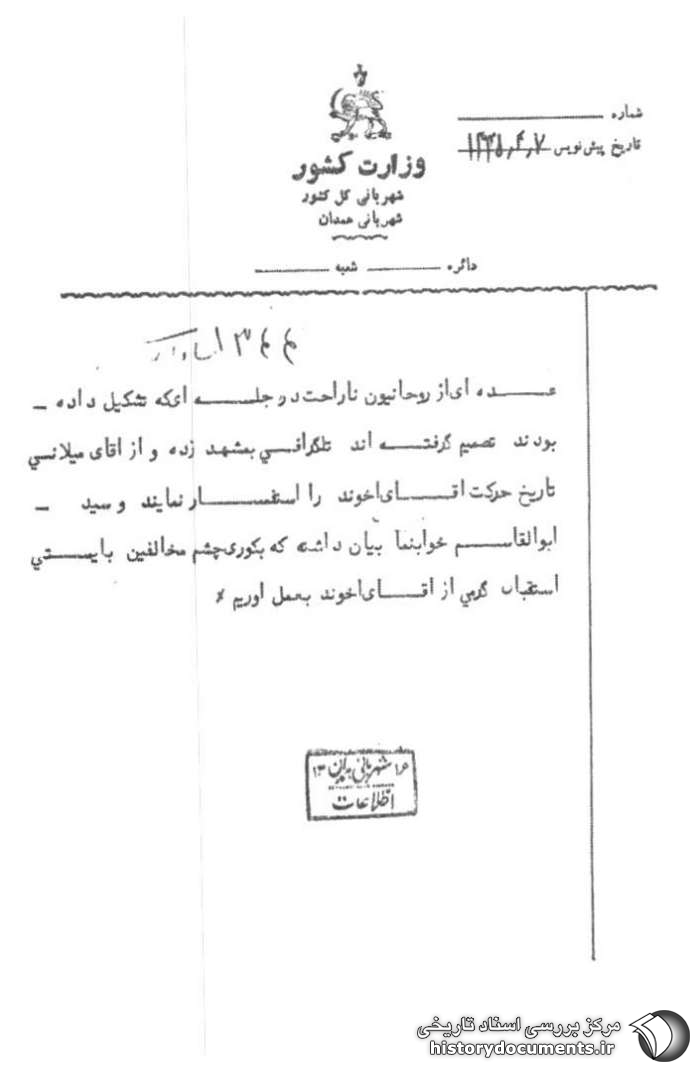 شماره
تاریخ پیش‌نویس ۱۳۴۵٫۴٫۷
وزارت کشور
شهربانی کل کشور
شهربانی همدان
دائره شعبه
۱۳۴۴ ساواک
عـــده ای از روحانیون ناراحت در جلســـه ای که تشکیل داده ـ
بودند تصمیم گرفتـــه اند تلگرافـــی بمشهد زده و از اقای میلانسی
تاریخ حرکت اقـــای اخوند را استفســـار نمایند و سید ـ
ابوالقاســـم خوابنما بیان داشته که بکوری چشم مخالفین بایستـــي
استقبال گرمي از اقـــای اخوند بعمل اوریم ×
شهربانی همدان
اطلاعات
مرکز بررسی اسناد تاریخی
historydocuments.ir